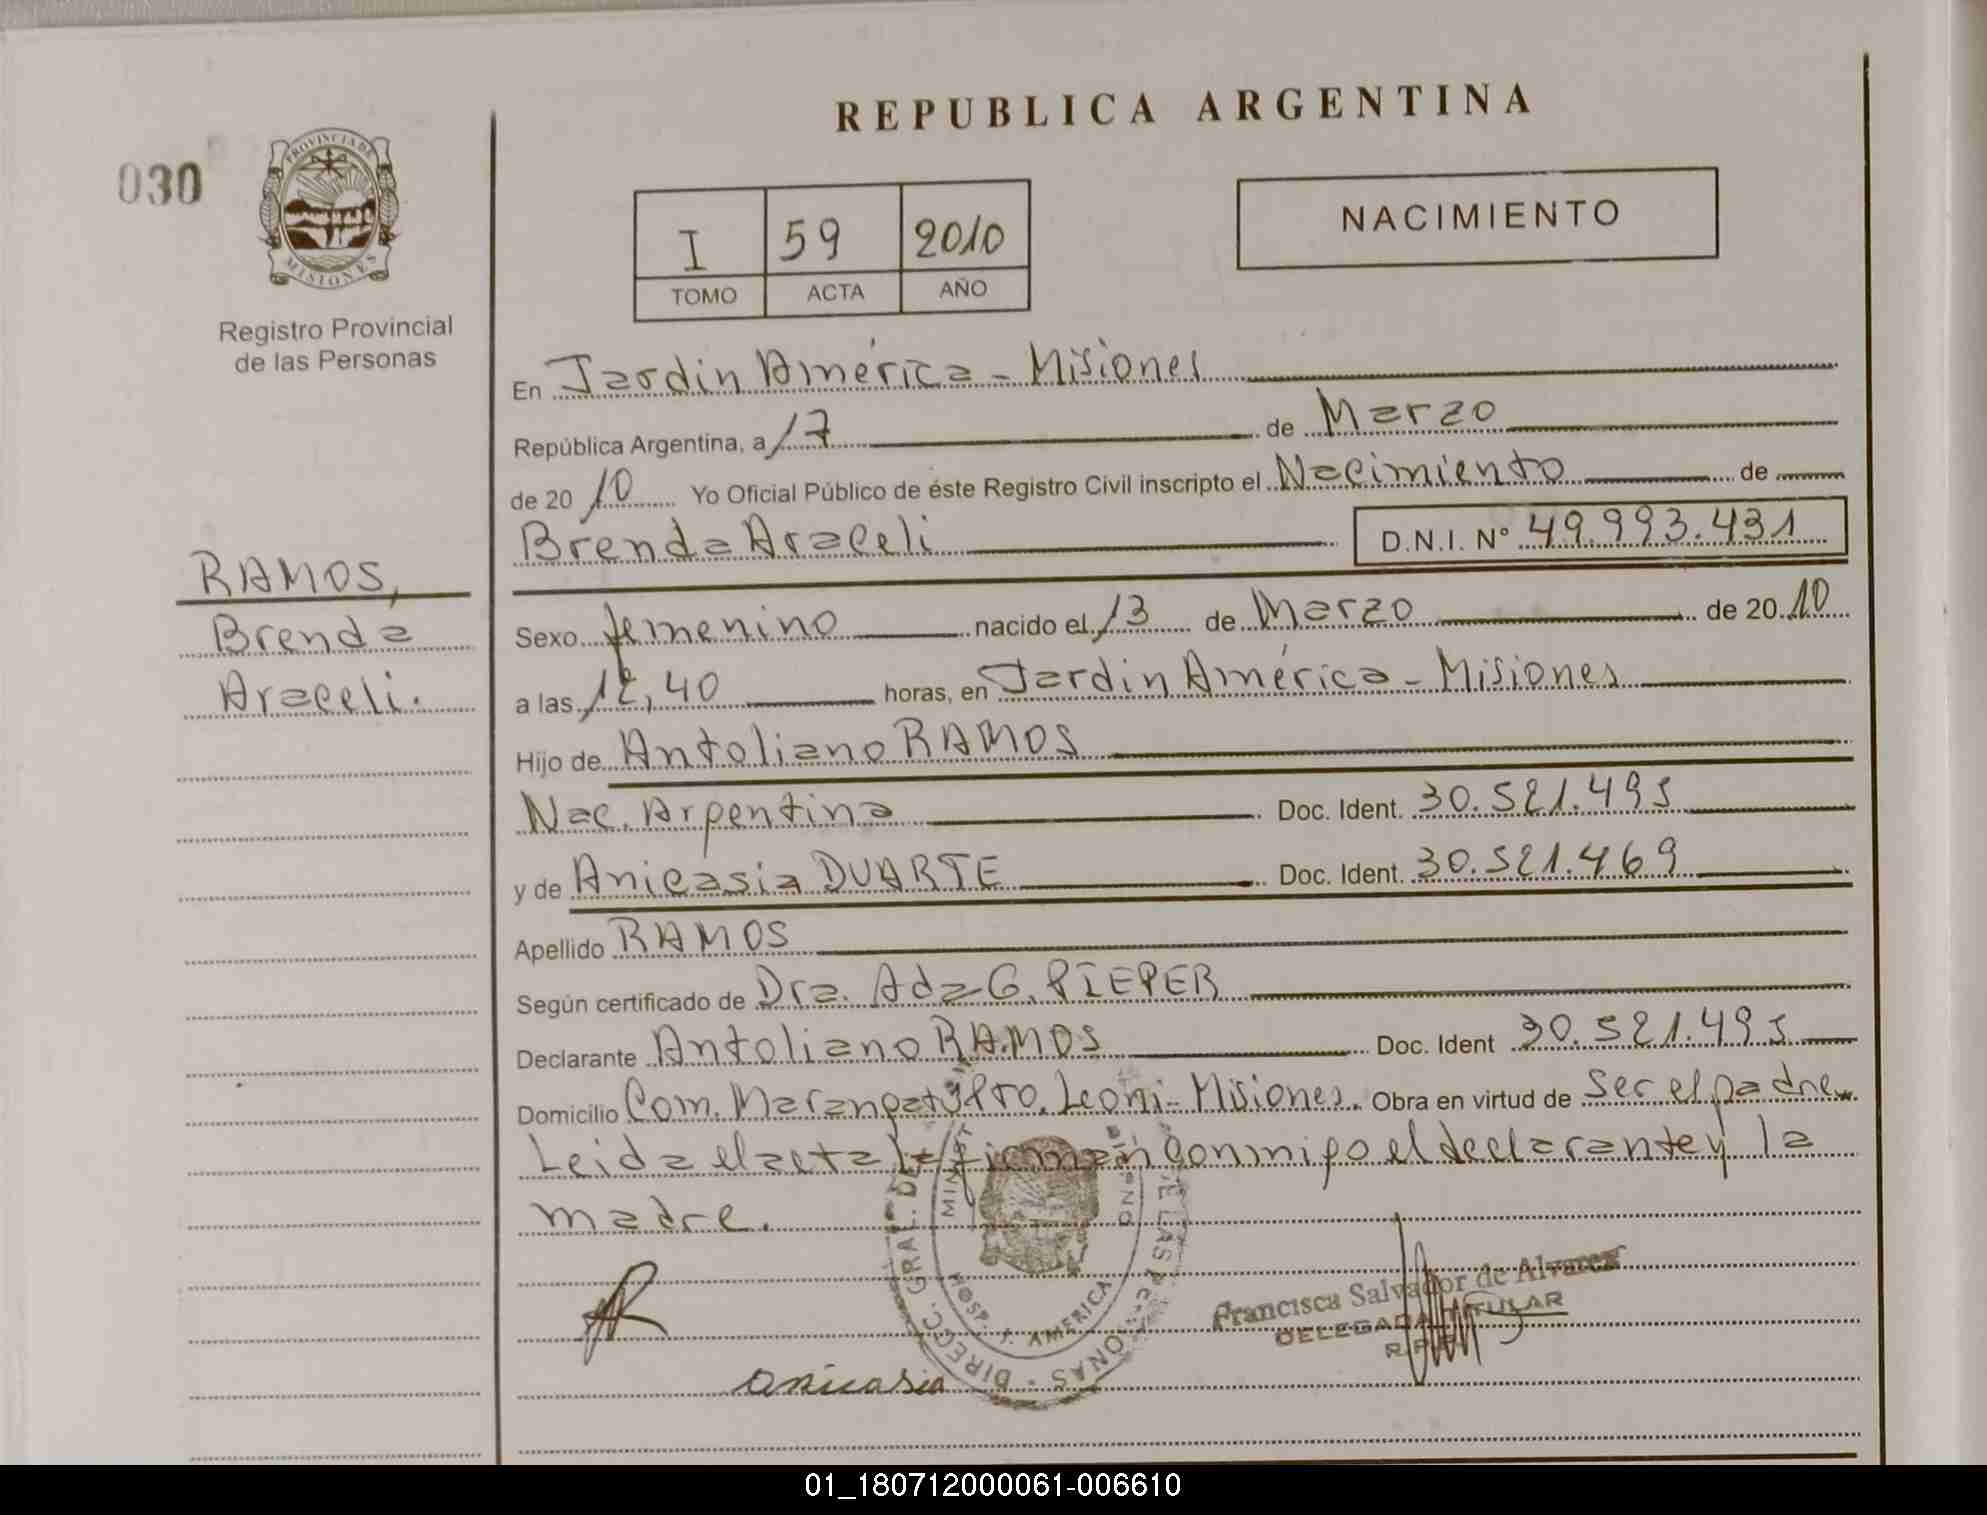 REPUBLICA ARGENTINA
030
PROVINCIA DE
MISIONES
Registro Provincial
de las Personas
I 59 2010
TOMO ACTA AÑO
NACIMIENTO
En Jardin América - Misiones
República Argentina, a 17 de Marzo
de 20 10 Yo Oficial Público de éste Registro Civil inscripto el Nacimiento de
Brenda Araceli D.N.I. N° 49.993.431
RAMOS,
Brenda
Araceli.
Sexo femenino nacido el 13 de Marzo de 20 10
a las 12,40 horas, en Jardin América - Misiones
Hijo de Antoliano RAMOS
Nac. Argentina Doc. Ident. 30.521.495
y de Anicasia DUARTE Doc. Ident. 30.521.469
Apellido RAMOS
Según certificado de Dra. Ada G. PIEPER
Declarante Antoliano RAMOS Doc. Ident 30.521.495
Domicilio Com. Marangatú Pto. Leoni - Misiones. Obra en virtud de Ser el padre
Leida el acta la firman conmigo el declarante y la
madre.
DIRECC. GRAL. DE LAS
HOSP. J. AMERICA
Francisca Salvador de Alvarez
DELEGADA TITULAR
AR
anicasia
01_180712000061-006610